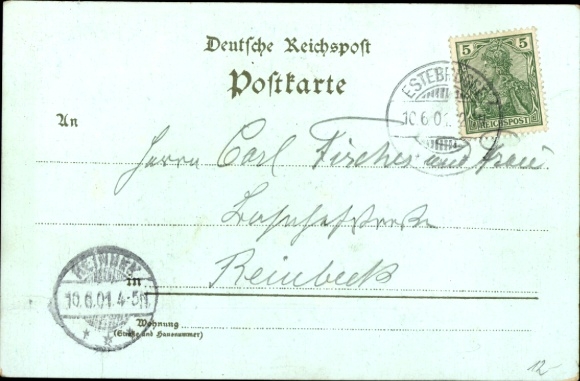 Deutsche Reichspost
Postkarte
5 5
REICHSPOST
ESTEBRÜGGE
10.6.01.
An
Herrn Carl Fischer und Frau
Bahnhofstraße
Reinbeck
in
REINBEK
10.6.01.4-5N
Wohnung
(Straße und Hausnummer)
12